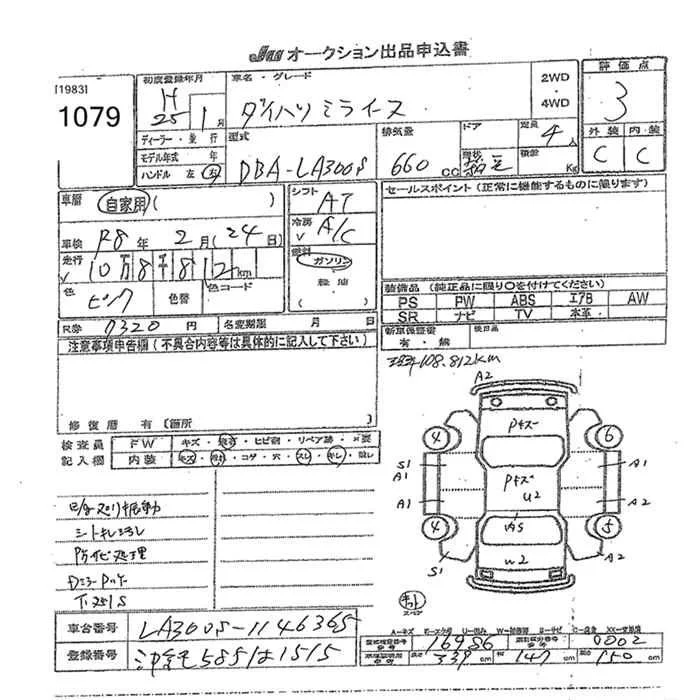 JU オークション出品申込書
[1983]
1079
初度登録年月
H 25年 1月
ディーラー・並行
モデル年式 年
ハンドル 左 右
車名・グレード
ダイハツミライース
2WD
・
4WD
型式
DBA-LA300S
排気量
660 CC
ドア
形状
定員
4人
積載
Kg
評価点
3
外装 内装
C C
車歴 自家用 ( )
車検 R8年 2月 (24日)
走行 10万8千812km
色 ピンク 色替 色コード
R券 7320円 名変期限 月 日
シフト AT
冷房 A/C
燃料 ガソリン
軽油
セールスポイント (正常に機能するものに限ります)
装備品 (純正品に限り○を付けてください)
PS PW ABS エアB AW
SR ナビ TV 本革
新車保証書 後日品
有・無
注意事項申告欄 (不具合内容等は具体的に記入して下さい)
修復歴 有 〔箇所
検査員 FW キズ・飛石・ヒビ割・リペア跡・
記入欄 内装 キズ・汚れ・コゲ・穴・スレ・キレ・
108.812km
A2
Pキズ
4 6
S1
A1 A1
Pキズ
U2
A1 A2
AS
4 5
U2
S1 A2
シートキレ
防サビ処理
下廻りS
車台番号 LA300S-1146365
登録番号 沖縄 585 は 1515
A-キズ
76486
0002
339cm 147cm 150cm